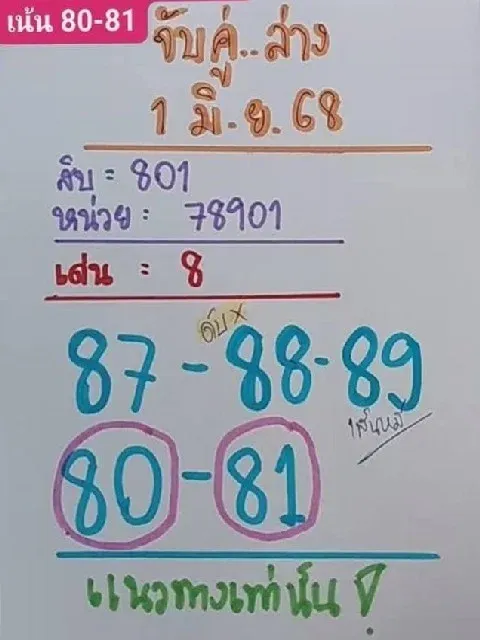 เน้น 80-81
จับคู่..ล่าง
1 มิ.ย. 68
สิบ = 801
หน่วย = 78901
เด่น = 8
ดับ x
87 - 88 - 89
เส้นหมี่
80 - 81
แนวทางเท่านั้น